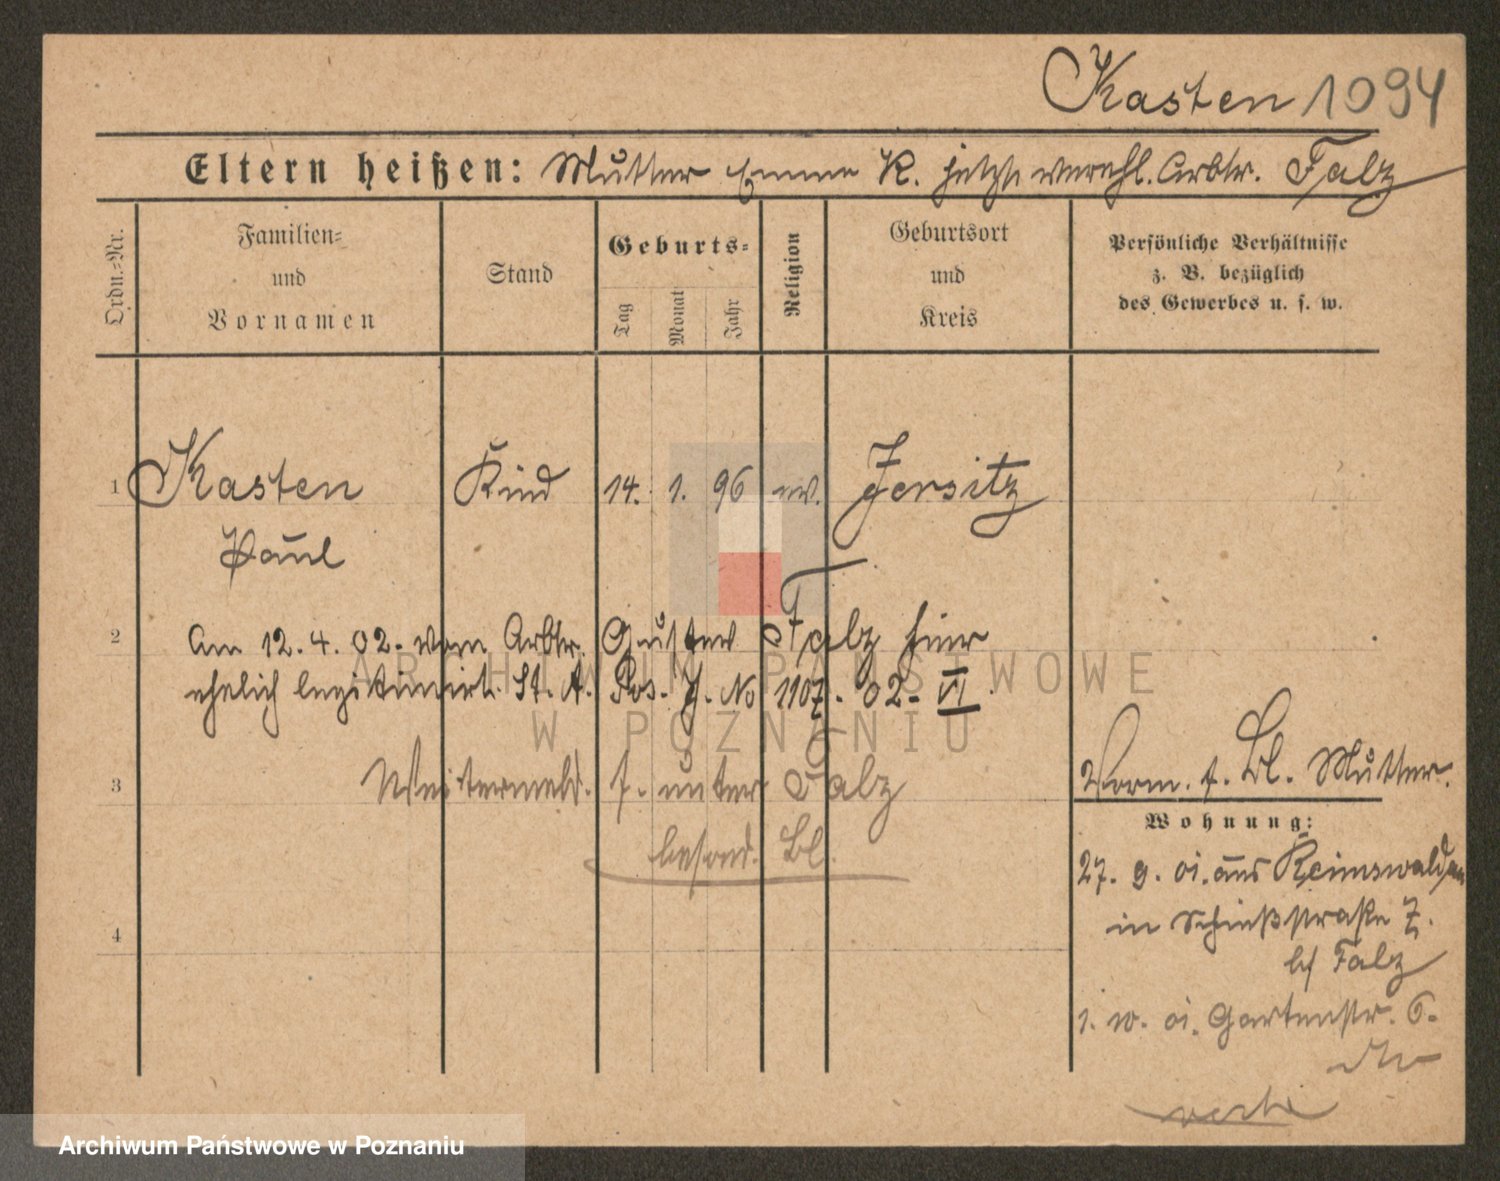 Kasten 1094
Eltern heißen: Mutter Emma K. jetzt verehl. Arbtr. Falz
Ordn.=Nr.
Familien=
und
Vornamen
Stand
Geburts=
Tag
Monat
Jahr
Religion
Geburtsort
und
Kreis
Persönliche Verhältnisse
z. B. bezüglich
des Gewerbes u. s. w.
1 Kasten Kind 14. 1. 96 ev. Jersitz
Paul
2 Am 12.4.02. vom Arbtr. Gustav Falz hier
ehelich legitimirt. St. A. Pos. J. No 1107. 02- VI.
3 Weitermeld. s. unter Falz
besond. Bl.
4
Vorm. s. Bl. Mutter.
Wohnung:
27. 9. 01. aus Reimswaldau
in Schießstraße 7.
b/ Falz
1. 10. 01. Gartenstr. 6.
ARCHIWUM PAŃSTWOWE
W POZNANIU
Archiwum Państwowe w Poznaniu